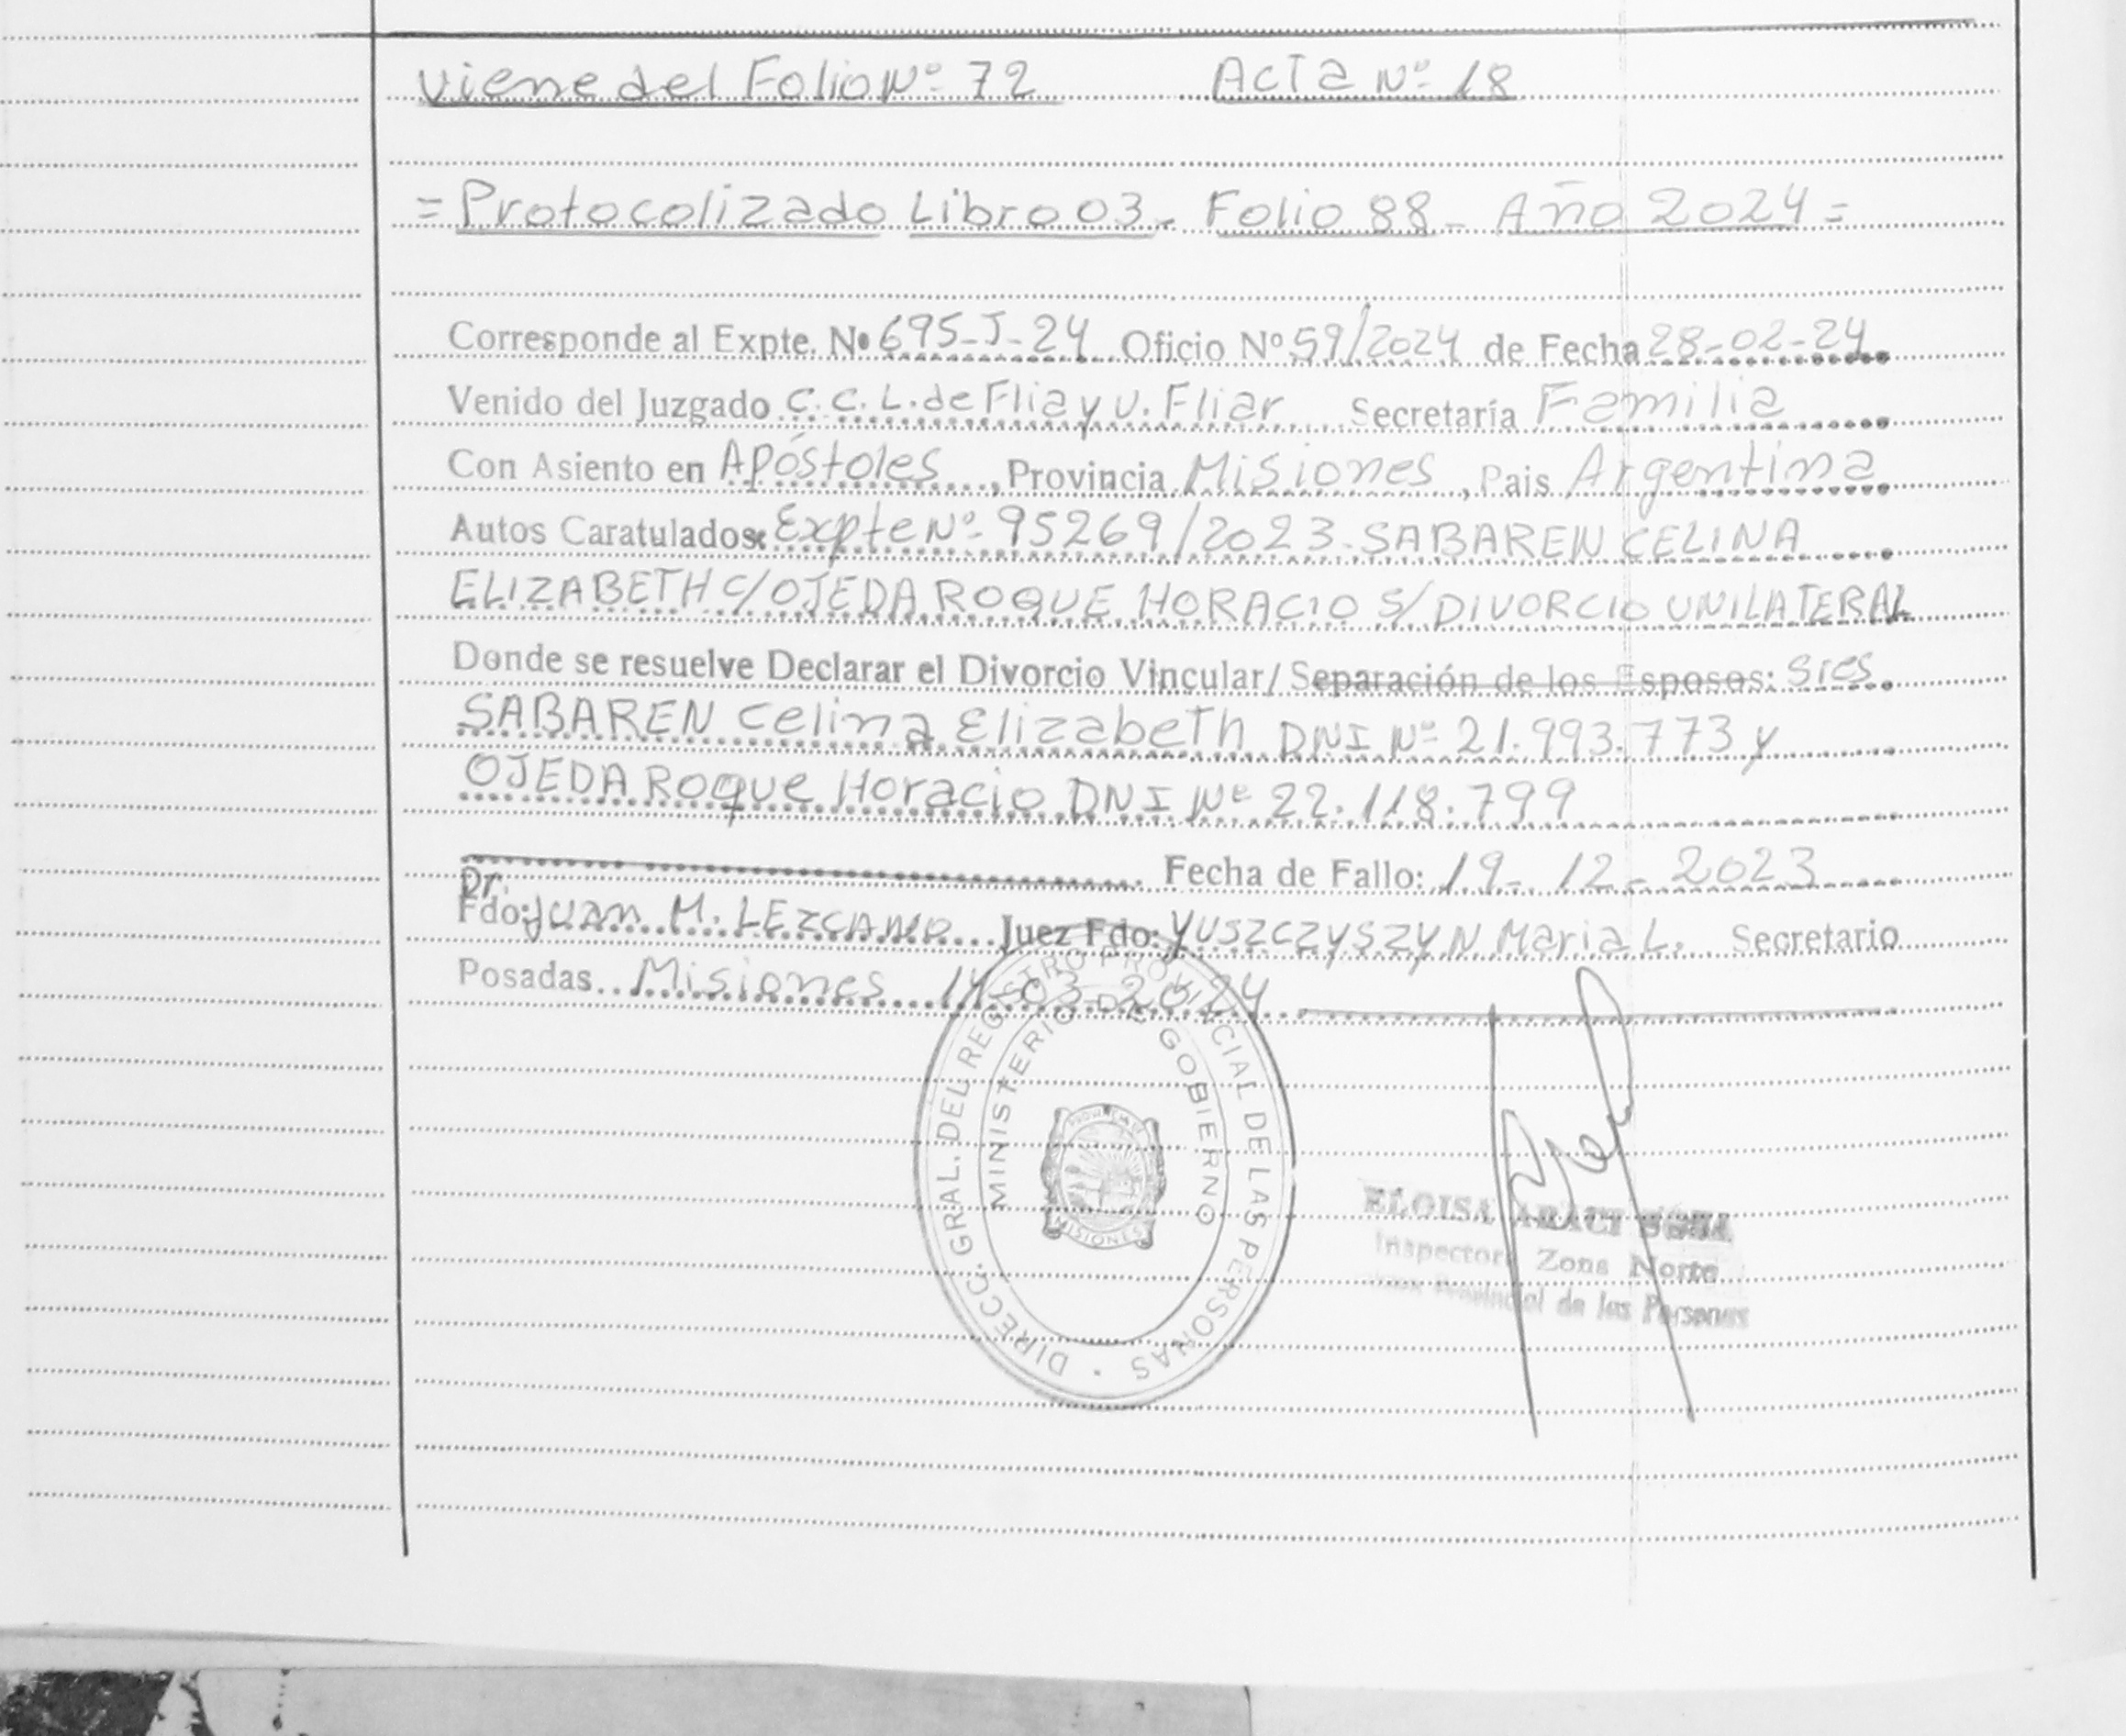 Viene del Folio Nº 72 Acta Nº 18
= Protocolizado Libro 03 - Folio 88 - Año 2024 =
Corresponde al Expte. Nº 695-J-24 Oficio Nº 59/2024 de Fecha 28-02-24
Venido del Juzgado C.C.L. de Flia y V. Fliar Secretaría Familia
Con Asiento en Apóstoles, Provincia Misiones, Pais Argentina
Autos Caratulados: Expte Nº 95269/2023. SABAREN CELINA
ELIZABETH C/ OJEDA ROQUE HORACIO S/ DIVORCIO UNILATERAL
Donde se resuelve Declarar el Divorcio Vincular/ Separación de los Esposos: Sres.
SABAREN Celina Elizabeth DNI Nº 21.993.773 y
OJEDA Roque Horacio DNI Nº 22.118.799
Fecha de Fallo: 19-12-2023
Dr.
Fdo: Juan M. LEZCANO Juez Fdo: YUSZCZYSZYN Maria L. Secretario
Posadas Misiones 14-03-2024
DIRECC. GRAL. DEL REGISTRO PROVINCIAL DE LAS PERSONAS
MINISTERIO DE GOBIERNO
PROVINCIA DE
MISIONES
ELOISA ARACI
Inspectora Zona Norte
Provincial de las Personas